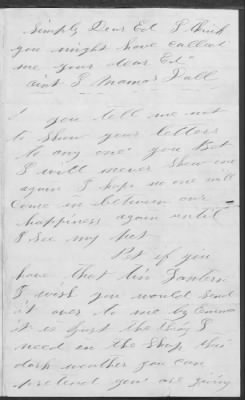 Simply Dear Ed I think
you might have called
me your dear Ed"
aint I Mamas Doll
you tell me not
to show your letters
to any one you Bet
I will never show one
again I hope no one will
Come in between our
happiness again until
I see my pet
Pet if you
have that tin Lantern
I wish you would send
it over to me by Emma
it is just the thing I
need in the shop this
dark weather you can
pretend you are giving